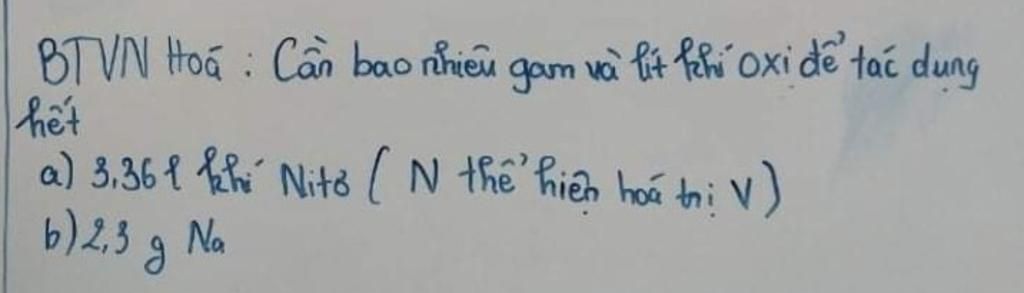 BTVN Hoá : Cần bao nhiêu gam và lít khí oxi để tác dụng
hết
a) 3,36 l khí Nitơ ( N thể hiện hoá trị V )
b) 2,3 g Na